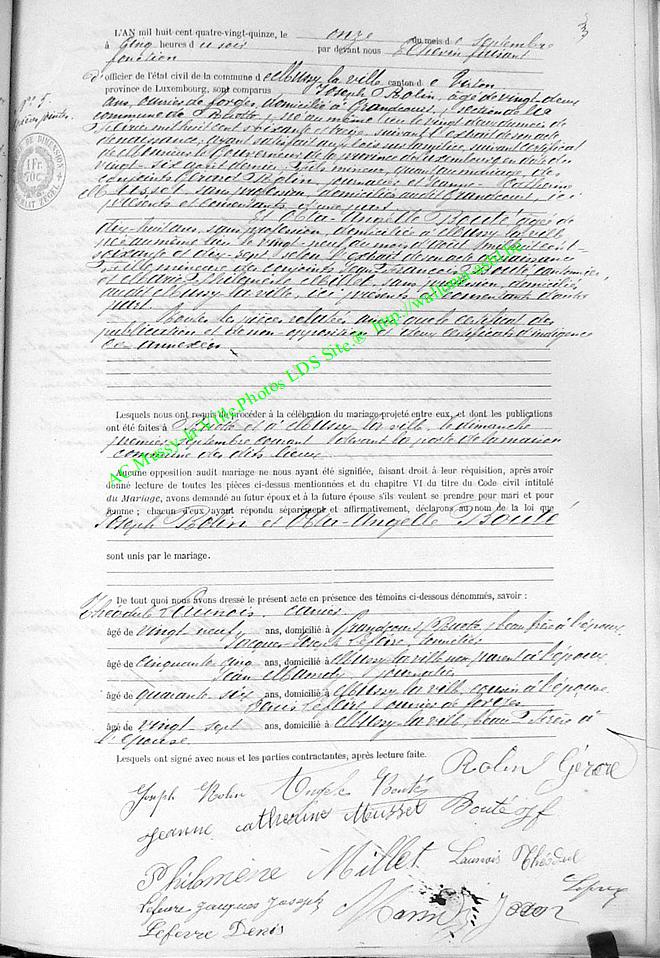 3
L'AN mil huit cent quatre-vingt-quinze, le onze du mois de septembre
à cinq heures du soir par devant nous
d'officier de l'état civil de la commune de Mussy la ville canton de Virton
province de Luxembourg, sont comparus Joseph Rolin, âgé de vingt-deux
ans, ouvrier de forges, domicilié à Grandcourt, section de la
commune de Ruette, né au même lieu le vingt-deux du mois de
février mil huit cent soixante et treize, suivant l'extrait de son acte
de naissance, ayant satisfait aux lois sur la milice, suivant certificat
de Monsieur le Gouverneur de la province de Luxembourg en date du
vingt-six avril dernier, fils mineur, quant au mariage, de
conjoints Gérard Rolin, journalier et Jeanne-Catherine
Musset sans profession, domiciliés audit Grandcourt, ici
présents et consentants d'une part.
Et Angelle Bouté âgée de
dix-huit ans, sans profession, domiciliée à Mussy la ville
née au même lieu le vingt-neuf du mois d'août mil huit cent
soixante et dix-sept selon l'extrait de son acte de naissance
fille mineure des conjoints Jean François Bouté, cantonnier
et Philomène Millet, sans profession, domiciliés
audit Mussy la ville, ici présents et consentants d'autre
part.
Toutes les pièces relatées ainsi que le certificat des
publication et de non opposition et deux certificats d'indigence
ci annexés
Lesquels nous ont requis de procéder à la célébration du mariage projeté entre eux, et dont les publications
ont été faites à Ruette et à Mussy la ville, le dimanche
premier septembre courant devant la porte de la maison
commune des dits lieux
Aucune opposition audit mariage ne nous ayant été signifiée, faisant droit à leur réquisition, après avoir
donné lecture de toutes les pièces ci-dessus mentionnées et du chapitre VI du titre du Code civil intitulé
du Mariage, avons demandé au futur époux et à la future épouse s'ils veulent se prendre pour mari et pour
femme ; chacun d'eux ayant répondu séparément et affirmativement, déclarons au nom de la loi que
Joseph Rolin et Angelle Bouté
sont unis par le mariage.
De tout quoi nous avons dressé le présent acte en présence des témoins ci-dessous dénommés, savoir :
Théodule Launois, ouvrier
âgé de vingt neuf ans, domicilié à Grandcourt, Ruette, beau frère à l'époux,
Jacques-Joseph Lefèvre,
âgé de cinquante cinq ans, domicilié à Mussy la ville non parent à l'époux,
Jean journalier
âgé de quarante-six ans, domicilié à Mussy la ville, cousin à l'épouse
Denis Lefèvre ouvrier de forges
âgé de vingt-sept ans, domicilié à Mussy-la-ville, beau-frère à
l'épouse
Lesquels ont signé avec nous et les parties contractantes, après lecture faite.
Rolin Gérard
Joseph Rolin Angèle Bouté
Jeanne catherine Musset Bouté jf
Philomène Millet Launois Théodul
Lefevre Jacques Joseph
Lefevre Denis
AC Mussy-la-Ville Photos LDS Site.® http://wallonia-asbl.be